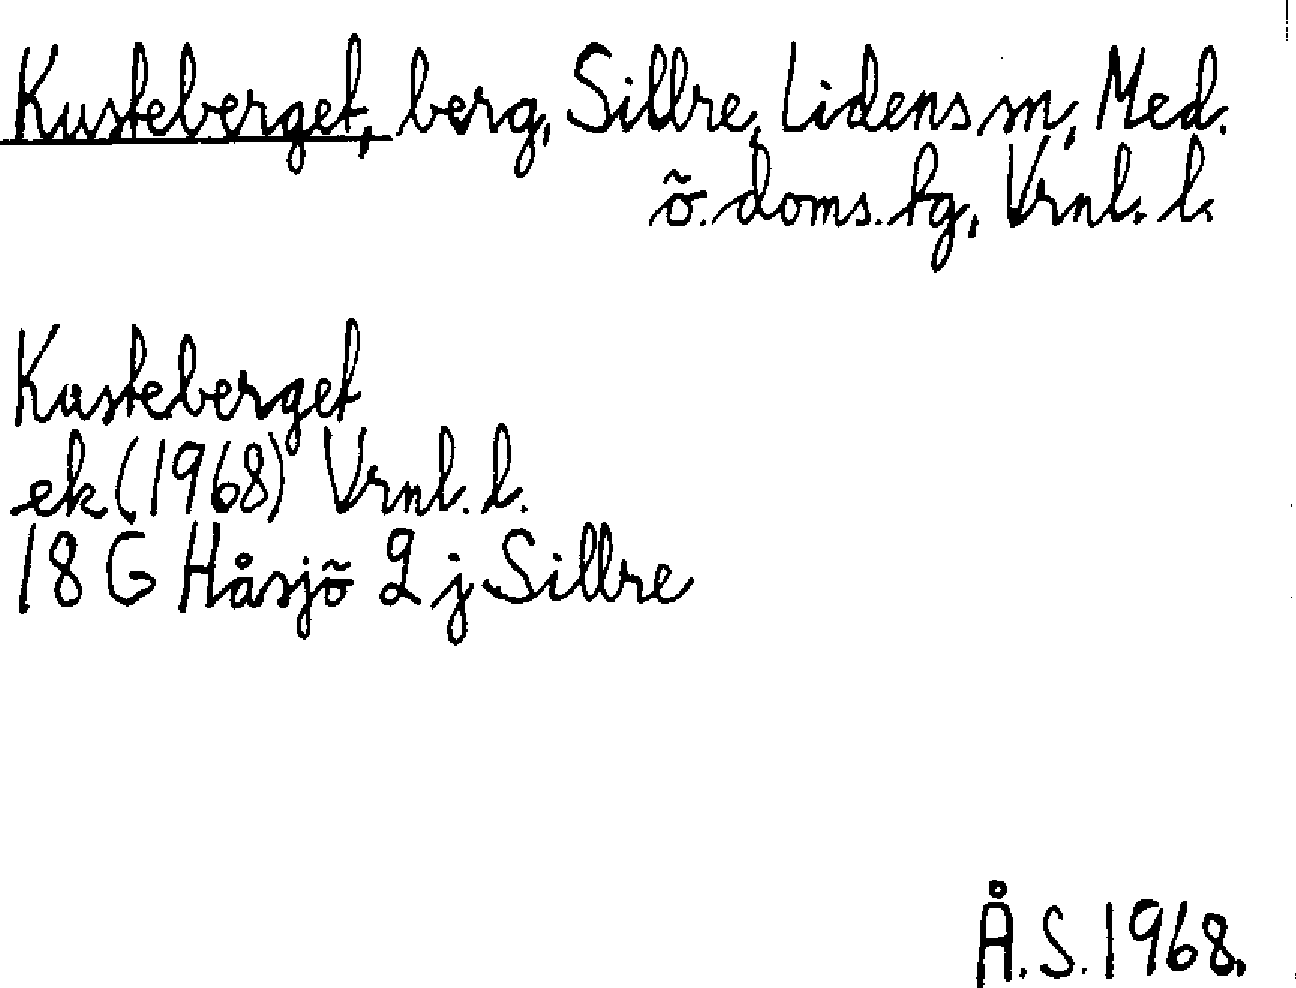 Kusteberget, berg, Sillre, Lidens sn, Med.
ö. doms. fg, Vrnl. l.
Kasteberget
ek (1968) Vrnl. l.
18 G Håsjö 2 j Sillre
Å. S. 1968.